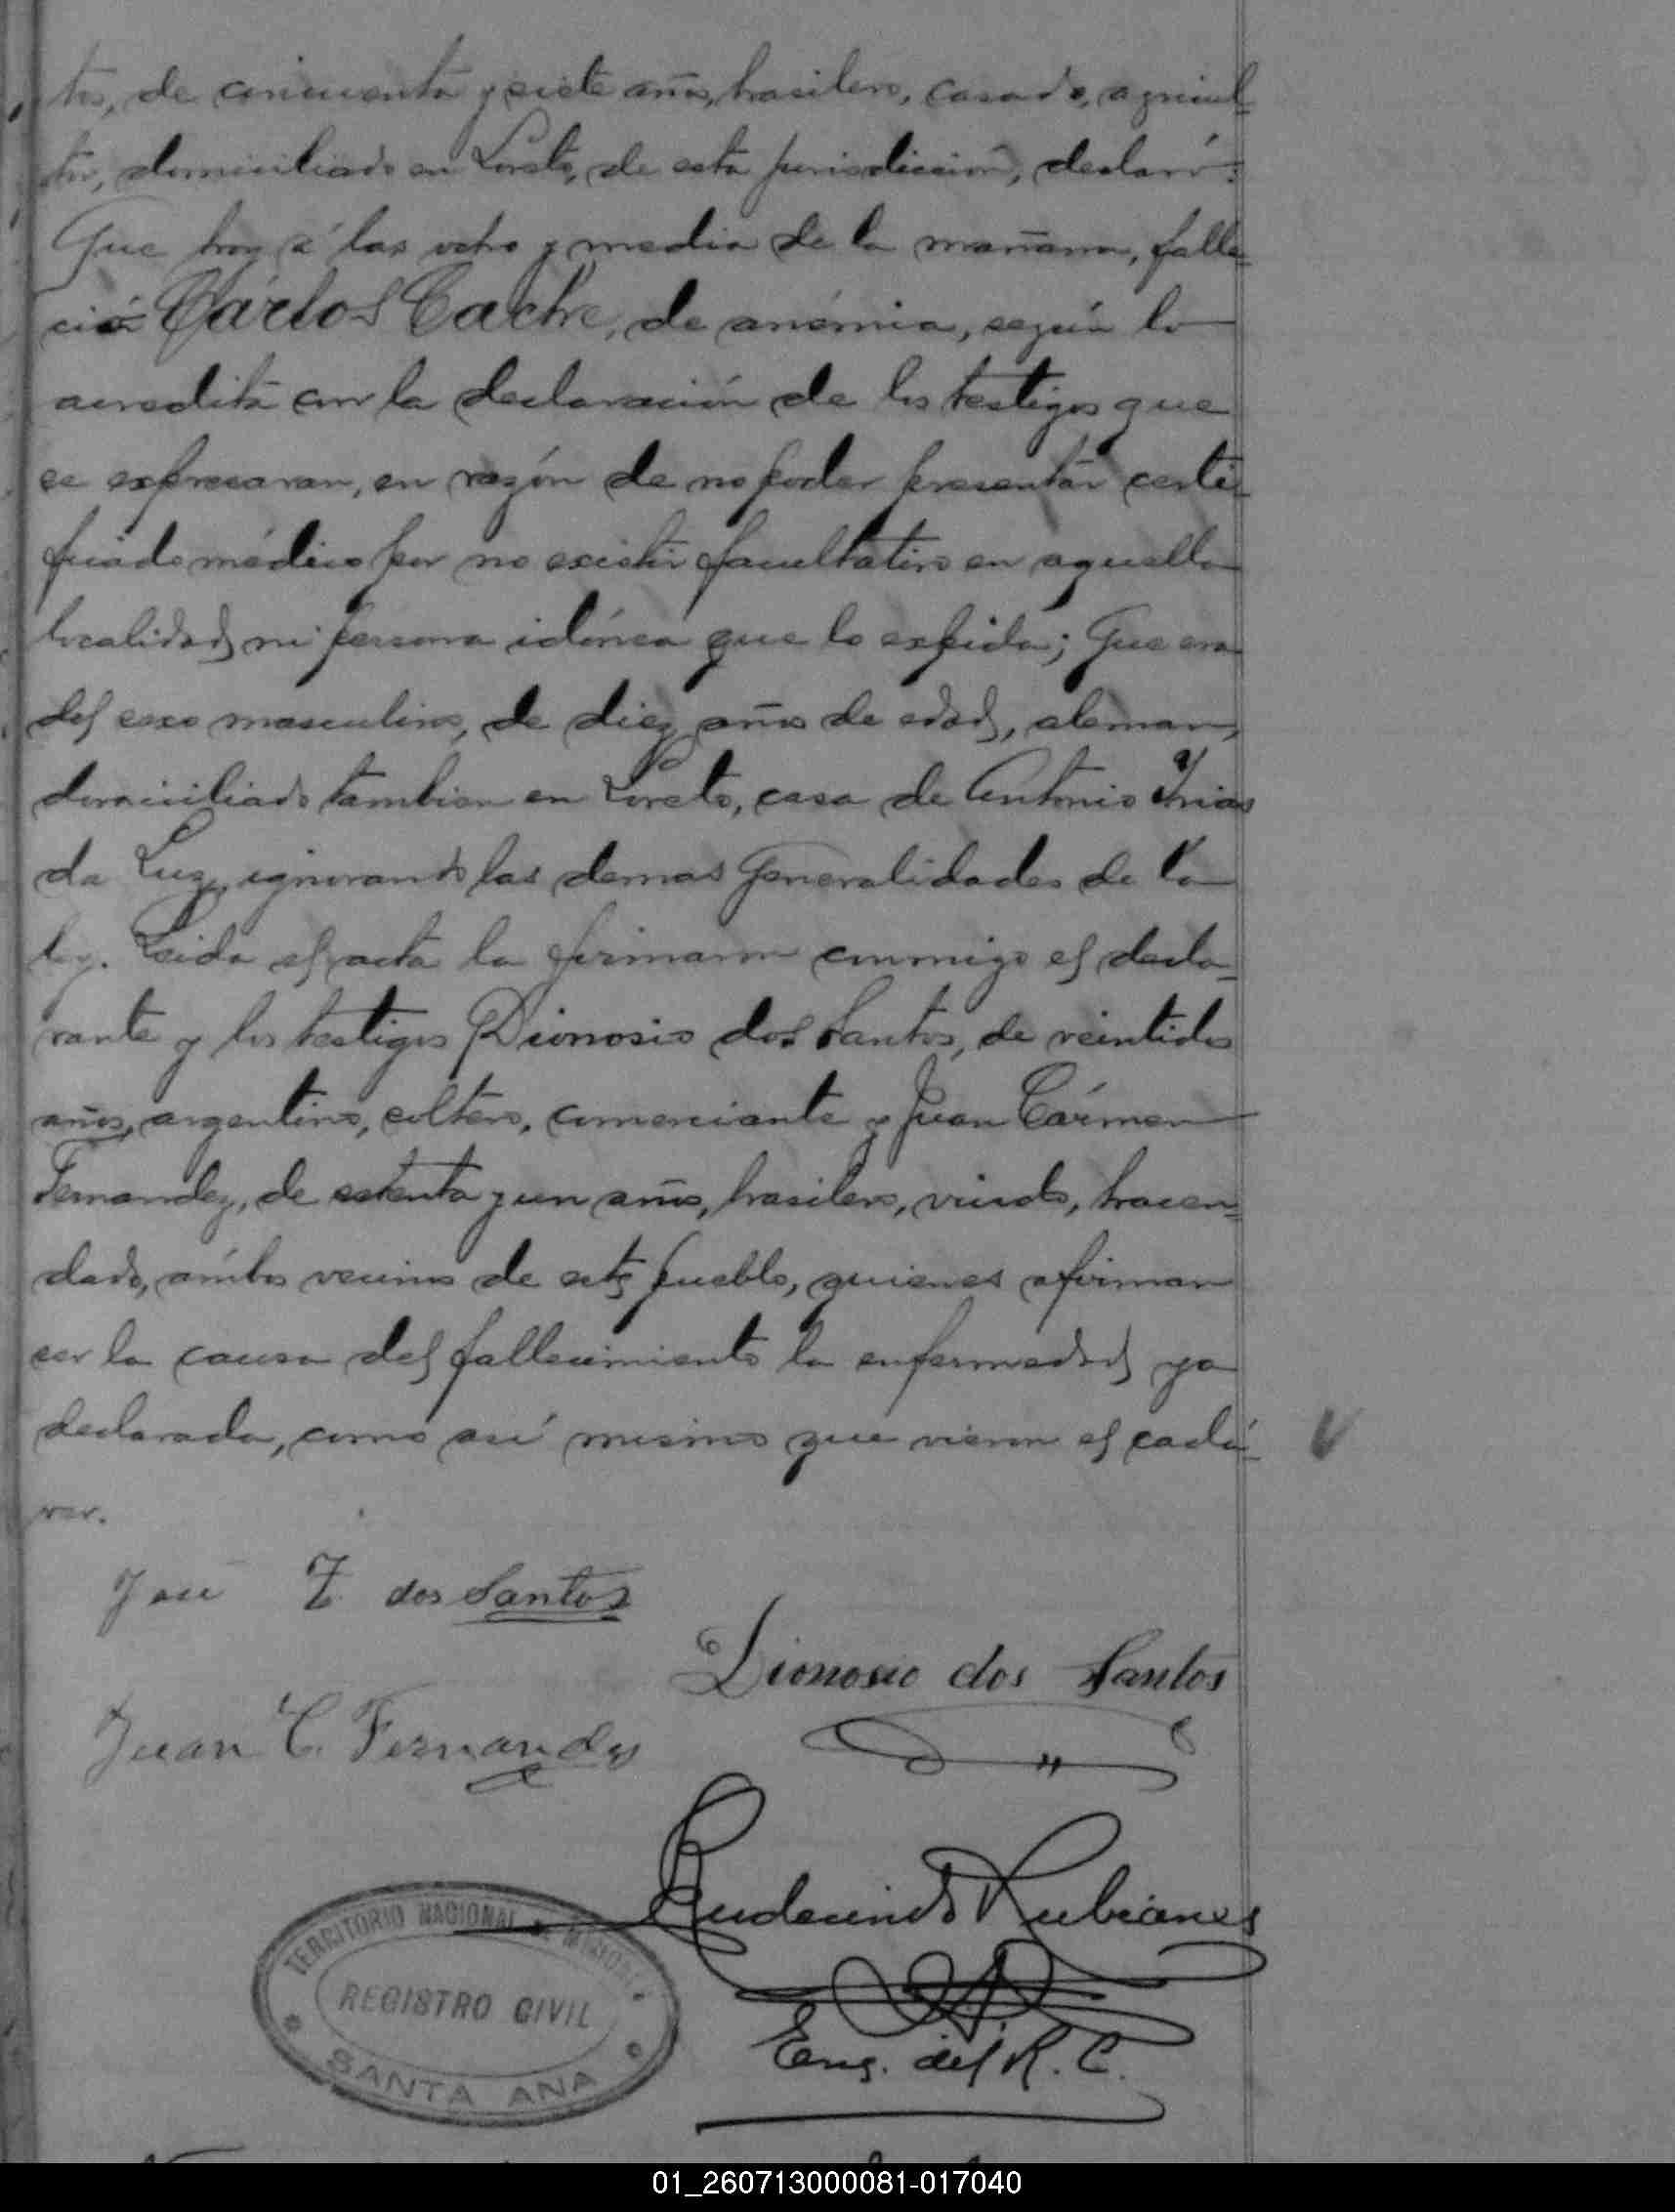 tos, de cincuenta y siete años, brasilero, casado, agricul-
tor, domiciliado en Loreto, de esta jurisdicción, declaró:
Que hoy á las ocho y media de la mañana, falle-
ció Cárlos Cache, de anémia, según lo
acredita con la declaración de los testigos que
se expresaran, en razón de no poder presentar certi-
ficado médico por no existir facultativo en aquella
localidad, ni persona idónea que lo expida; Que era
del sexo masculino, de diez años de edad, aleman,
domiciliado tambien en Loreto, casa de Antonio
da Luz, ignorando las demas generalidades de la
ley. Leida el acta la firmaron conmigo el decla-
rante y los testigos Dionosio dos Santos, de veintidos
años, argentino, soltero, comerciante y Juan Cármen
Fernandez, de setenta y un años, brasilero, viudo, hacen-
dado, ámbos vecinos de este pueblo, quienes afirman
ser la causa del fallecimiento la enfermedad ya
declarada, como así mismo que vieron el cadá-
ver.
José Z dos Santos
Dionosio dos Santos
Juan C. Fernandez
Rudecindo Rubianes
Eng. del R. C.
TERRITORIO NACIONAL DE MISIONES
REGISTRO CIVIL
SANTA ANA
01_260713000081-017040